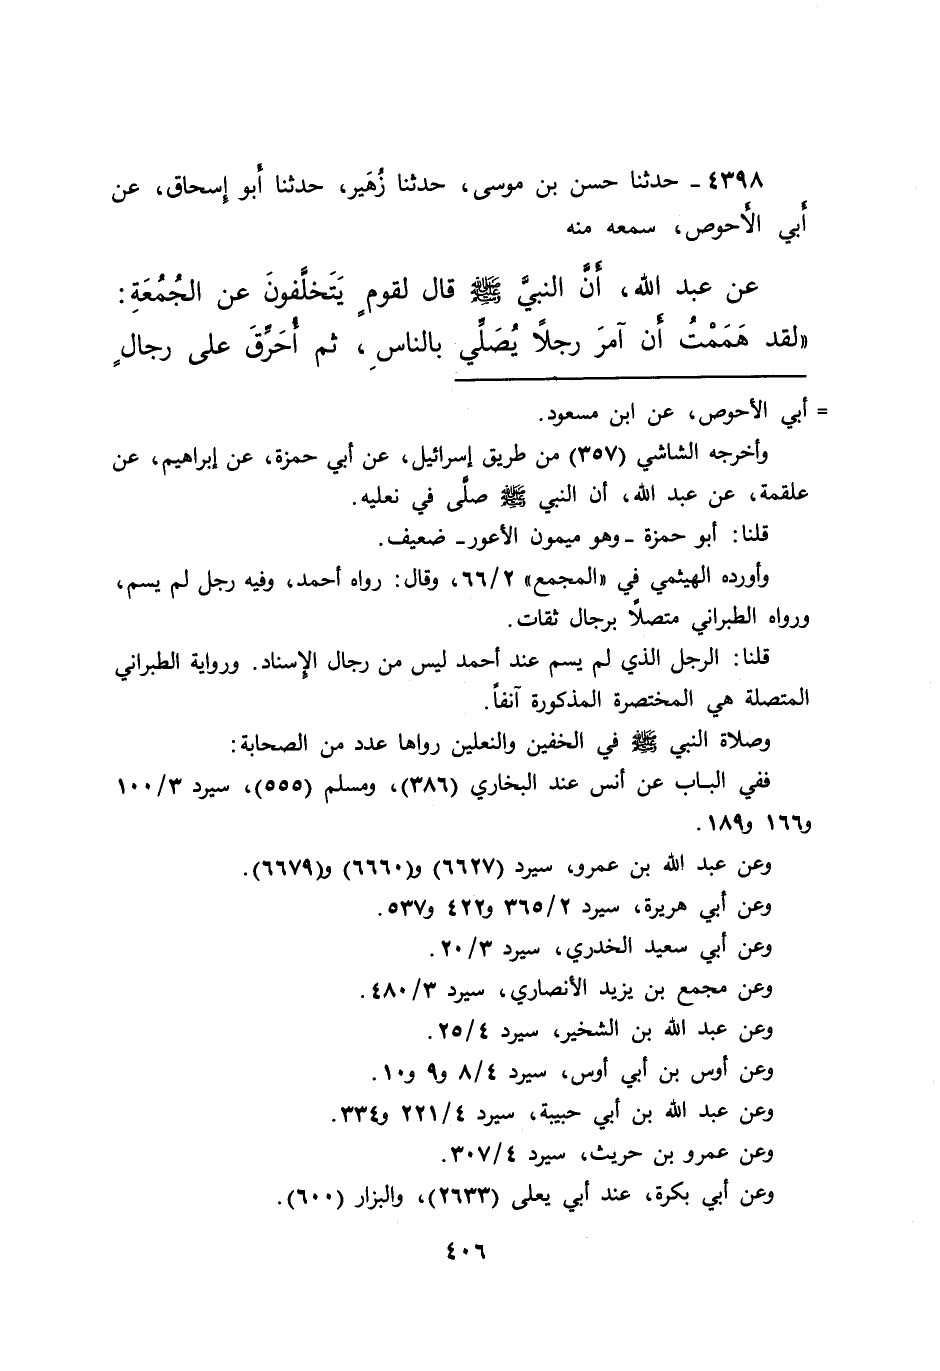 ٤٣٩٨ ـ حدثنا حسن بن موسى، حدثنا زُهَير، حدثنا أَبو إِسحاق، عن
أَبي الأَحوص، سمعه منه
عن عبد الله، أَنَّ النبيَّ ﷺ قال لقومٍ يَتَخلَّفونَ عن الجُمُعَةِ:
«لقد هَمَمْتُ أَن آمرَ رجلاً يُصَلِّي بالناسِ، ثم أُحَرِّقَ على رجالٍ
= أبي الأحوص، عن ابن مسعود.
وأخرجه الشاشي (٣٥٧) من طريق إسرائيل، عن أبي حمزة، عن إبراهيم، عن
علقمة، عن عبد الله، أن النبي ﷺ صلَّى في نعليه.
قلنا: أبو حمزة ـ وهو ميمون الأعور ـ ضعيف.
وأورده الهيثمي في «المجمع» ٦٦/٢، وقال: رواه أحمد، وفيه رجل لم يسم،
ورواه الطبراني متصلاً برجال ثقات.
قلنا: الرجل الذي لم يسم عند أحمد ليس من رجال الإسناد. ورواية الطبراني
المتصلة هي المختصرة المذكورة آنفاً.
وصلاة النبي ﷺ في الخفين والنعلين رواها عدد من الصحابة:
ففي الباب عن أنس عند البخاري (٣٨٦)، ومسلم (٥٥٥)، سيرد ١٠٠/٣
و١٦٦ و١٨٩.
وعن عبد الله بن عمرو، سيرد (٦٦٢٧) و(٦٦٦٠) و(٦٦٧٩).
وعن أبي هريرة، سيرد ٣٦٥/٢ و٤٢٢ و٥٣٧.
وعن أبي سعيد الخدري، سيرد ٢٠/٣.
وعن مجمع بن يزيد الأنصاري، سيرد ٤٨٠/٣.
وعن عبد الله بن الشخير، سيرد ٢٥/٤.
وعن أوس بن أبي أوس، سيرد ٨/٤ و٩ و١٠.
وعن عبد الله بن أبي حبيبة، سيرد ٢٢١/٤ و٣٣٤.
وعن عمرو بن حريث، سيرد ٣٠٧/٤.
وعن أبي بكرة، عند أبي يعلى (٢٦٣٣)، والبزار (٦٠٠).
٤٠٦